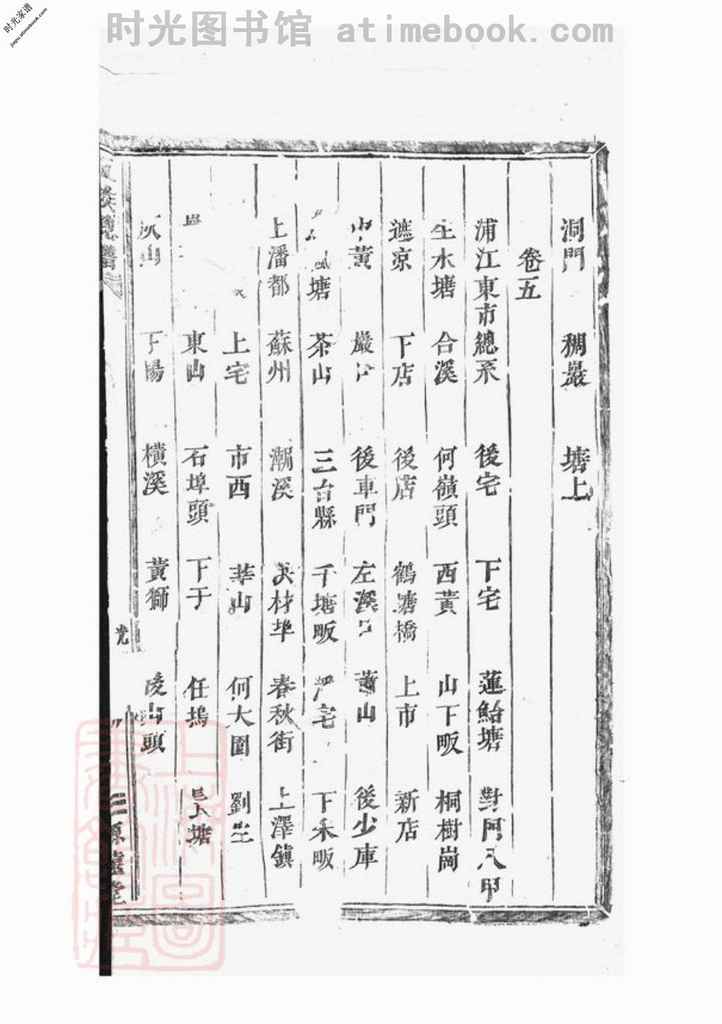 时光图书馆 atimebook.com
时光家谱
洞門 稠巖 塘上
卷五
浦江東市總系 後宅 下宅 蓮鮐塘 對門八甲
生水塘 合溪 何嶺頭 西黃 山下畈 桐樹崗
遮京 下店 後店 鶴塘橋 上市 新店
中黃 巖 後車門 左溪 蕭山 後少庫
塘 茶山 三台縣 千塘畈 宅 下朱畈
上潘都 蘇州 潮溪 春秋街 上澤鎮
上宅 市西 華山 何大園 劉生
東山 石埠頭 下于 任塢 塘
下陽 橫溪 黃獅 陵山頭